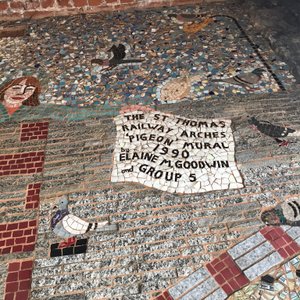 THE ST THOMAS
RAILWAY ARCHES
'PIGEON' MURAL
1990
by ELAINE M. GOODWIN
and GROUP 5